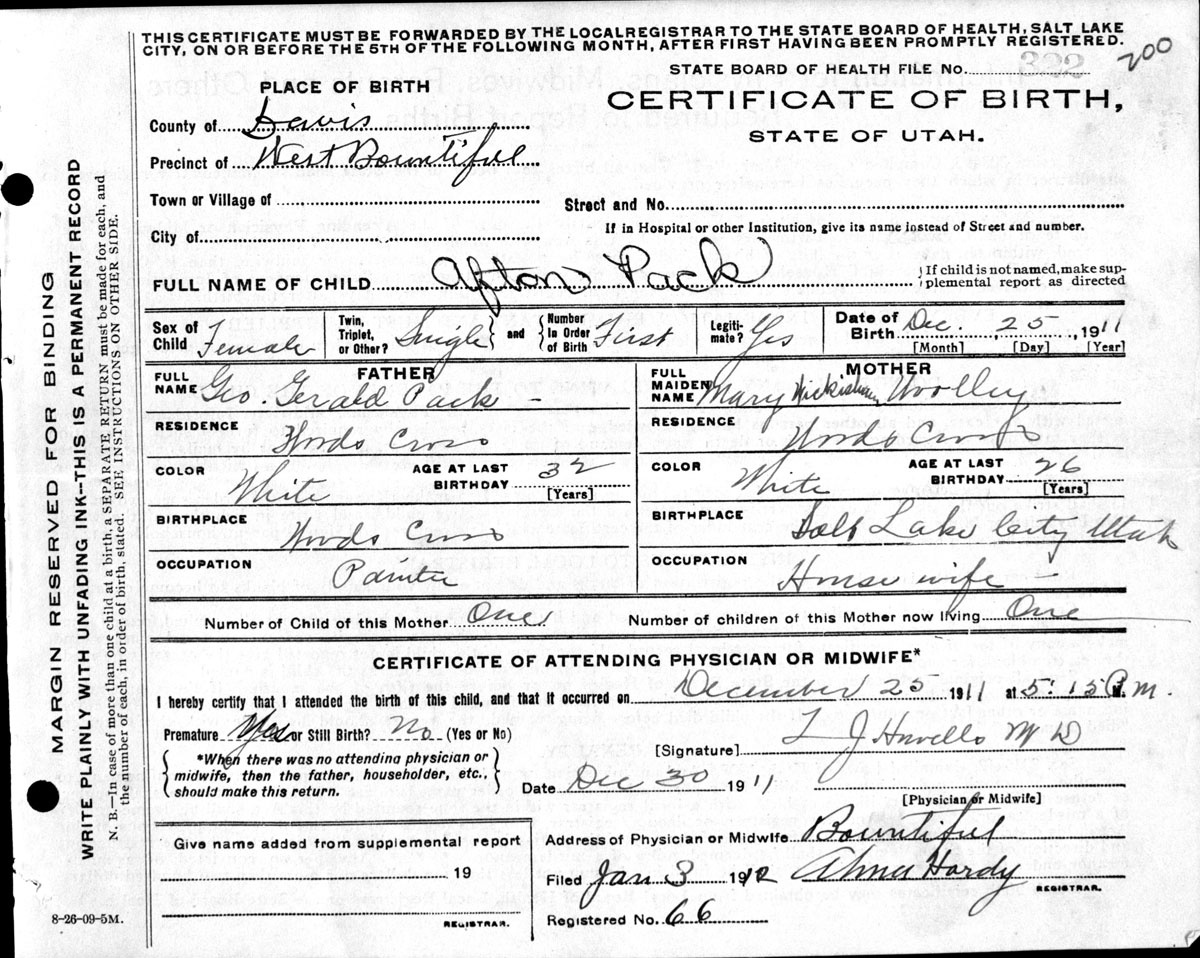 THIS CERTIFICATE MUST BE FORWARDED BY THE LOCALREGISTRAR TO THE STATE BOARD OF HEALTH, SALT LAKE
CITY, ON OR BEFORE THE 5TH OF THE FOLLOWING MONTH, AFTER FIRST HAVING BEEN PROMPTLY REGISTERED.
200
STATE BOARD OF HEALTH FILE No. 322
PLACE OF BIRTH
CERTIFICATE OF BIRTH,
STATE OF UTAH.
County of Davis
Precinct of West Bountiful
Town or Village of
Street and No.
City of
If in Hospital or other Institution, give its name instead of Street and number.
FULL NAME OF CHILD Afton Pack
If child is not named, make sup-
plemental report as directed
Sex of Child Female
Twin, Triplet, or Other? Single and Number In Order of Birth First
Legiti-mate? Yes
Date of Birth Dec. 25 1911
[Month] [Day] [Year]
FATHER
FULL NAME Geo. Gerald Pack -
RESIDENCE Woods Cross
COLOR White
AGE AT LAST BIRTHDAY 32
[Years]
BIRTHPLACE Woods Cross
OCCUPATION Painter
MOTHER
FULL MAIDEN NAME Mary Woolley
RESIDENCE Woods Cross
COLOR White
AGE AT LAST BIRTHDAY 26
[Years]
BIRTHPLACE Salt Lake City Utah
OCCUPATION House wife -
Number of Child of this Mother One
Number of children of this Mother now living One
CERTIFICATE OF ATTENDING PHYSICIAN OR MIDWIFE*
I hereby certify that I attended the birth of this child, and that it occurred on December 25 1911 at 5:15 P.M.
Premature Yes or Still Birth? No (Yes or No)
[Signature] L J M D
*When there was no attending physician or
midwife, then the father, householder, etc.,
should make this return.
Date Dec 30 1911
[Physician or Midwife]
Give name added from supplemental report
19
REGISTRAR.
Address of Physician or Midwife Bountiful
Filed Jan 3 1912 Alma Hardy
REGISTRAR.
Registered No. 66
MARGIN RESERVED FOR BINDING
WRITE PLAINLY WITH UNFADING INK--THIS IS A PERMANENT RECORD
N. B.—In case of more than one child at a birth, a SEPARATE RETURN must be made for each, and
the number of each, in order of birth, stated. SEE INSTRUCTIONS ON OTHER SIDE.
8-26-09-5M.